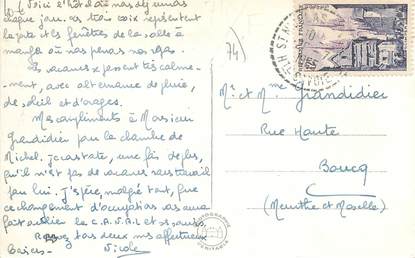 Voici l'hôtel où nous déjeunons
chaque jour. Les trois croix représentent
la porte et les fenêtres de la salle à
manger où nous prenons nos repas.
Les vacances se passent très calme-
ment, avec alternance de pluie,
de soleil et d'orages.
Mes compliments à Monsieur
Grandidier pour la chambre de
Michel. Je constate, une fois de plus,
qu'il n'est pas de vacances sans travail
pour lui. J'espère, malgré tout, que
ce changement d'occupations aura
fait oublier le
Recevez tous deux mes affectueux
baisers. Nicole
74
Mr et Mme Grandidier
Rue Haute
Boucq
(Meurthe et Moselle)
PHOTOGRAPHIE
VÉRITABLE